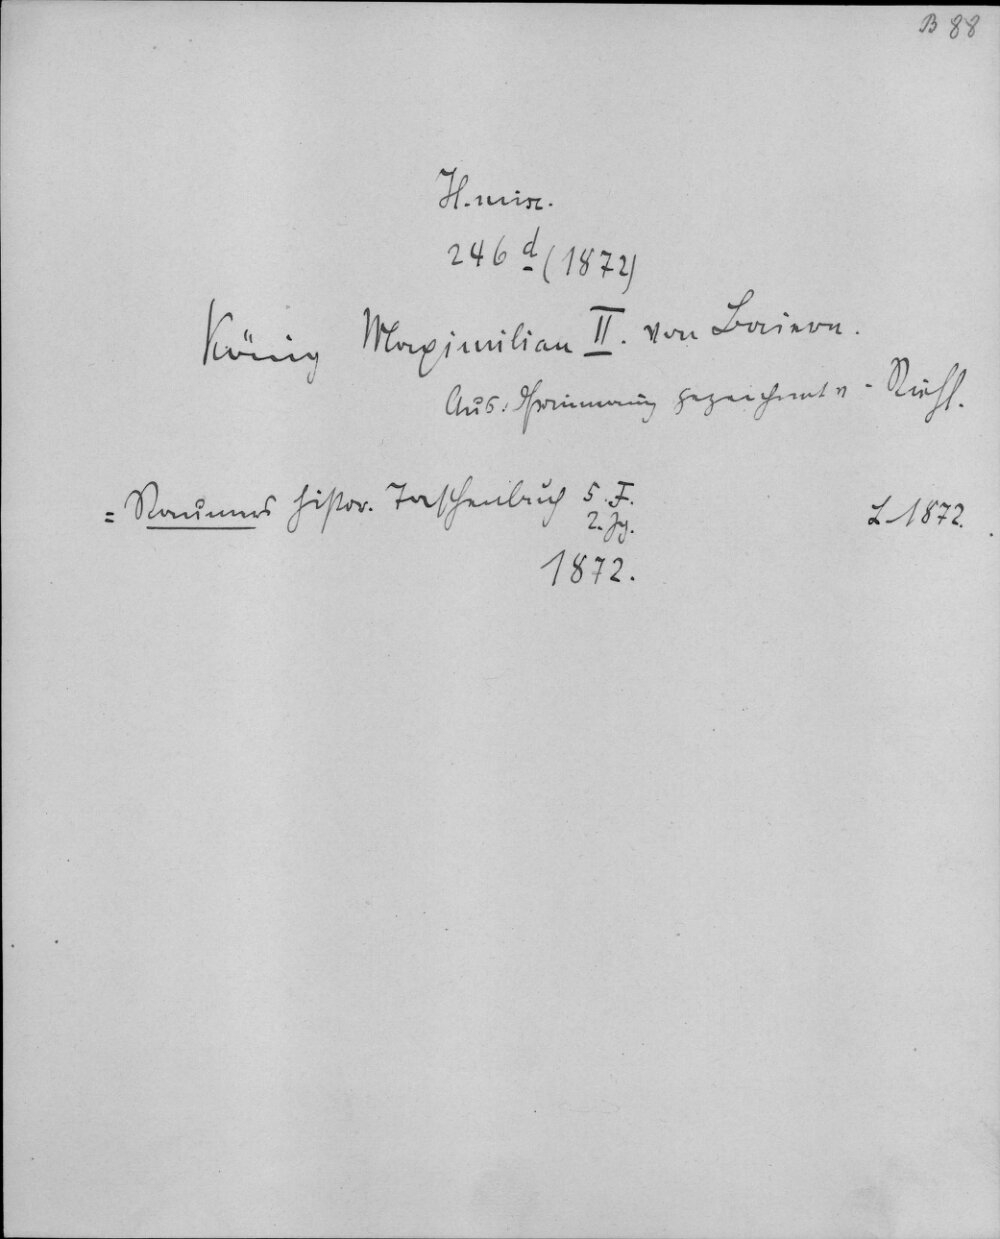 B 88
H. misc.
246 d (1872)
König Maximilian II. von Baiern.
Aus d. Erinnerung gezeichnet v. Riehl.
= Raumers histor. Taschenbuch 5. F.
2. Jg.
1872.
L. 1872.